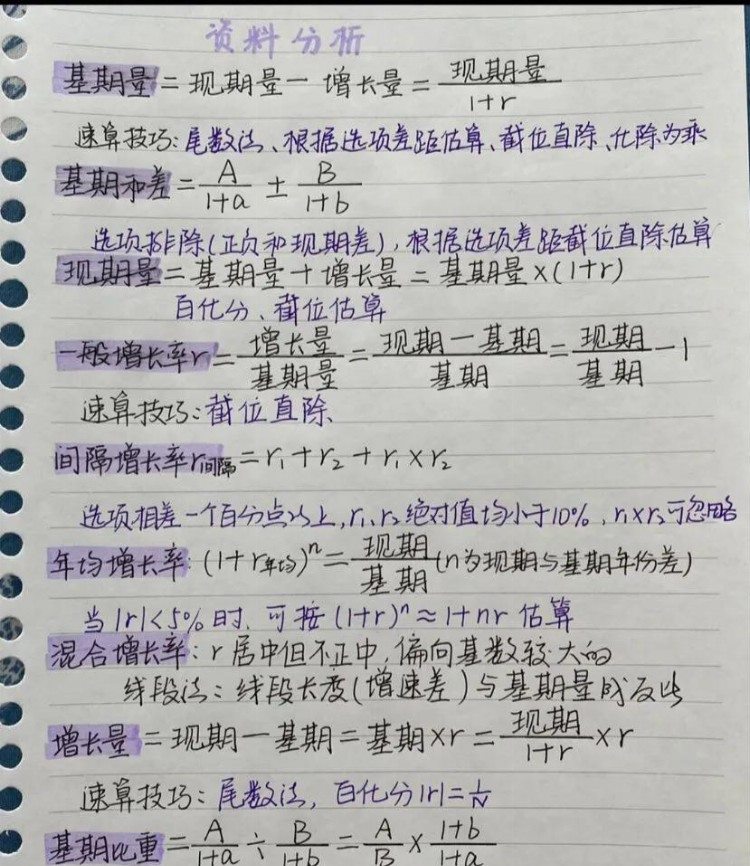 资料分析
基期量=现期量－增长量=现期量/1+r
速算技巧:尾数法、根据选项差距估算、截位直除、化除为乘
基期和差=A/1+a±B/1+b
选项排除(正负和现期差),根据选项差距截位直除估算
现期量=基期量+增长量=基期量×(1+r)
百化分、截位估算
一般增长率r=增长量/基期量=现期－基期/基期=现期/基期－1
速算技巧:截位直除
间隔增长率r间隔=r₁+r₂+r₁×r₂
选项相差一个百分点以上,r₁、r₂绝对值均小于10%,r₁×r₂可忽略
年均增长率:(1+r年均)ⁿ=现期/基期(n为现期与基期年份差)
当|r|<5%时,可按(1+r)ⁿ≈1+nr估算
混合增长率:r居中但不正中,偏向基数较大的
线段法:线段长度(增速差)与基期量成反比
增长量=现期－基期=基期×r=现期/1+r×r
速算技巧:尾数法,百化分|r|=1/N
基期比重=A/1+a÷B/1+b=A/B×1+b/1+a